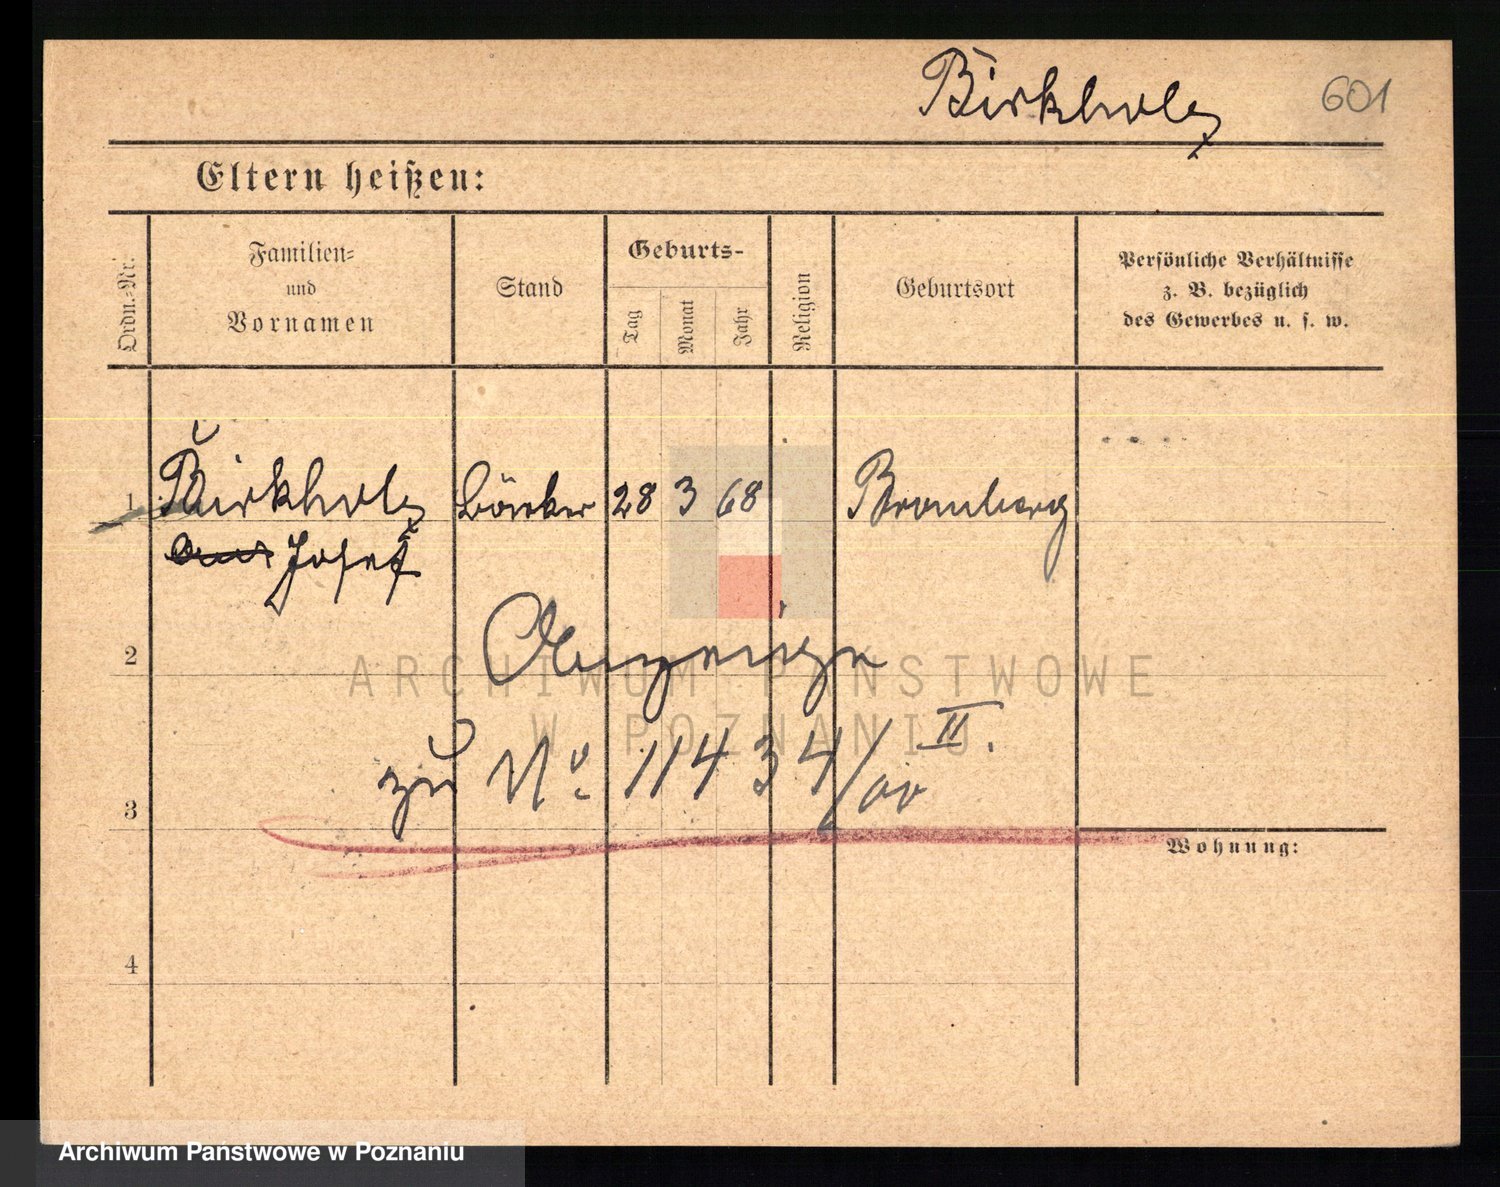 Birkholz 601
Eltern heißen:
Ordn.-Nr.
Familien-
und
Vornamen
Stand
Geburts-
Tag
Monat
Jahr
Religion
Geburtsort
Persönliche Verhältnisse
z. B. bezüglich
des Gewerbes u. s. w.
1 Birkholz Bäcker 28 3 68 Bromberg
Josef
2
Anzeige
ARCHIWUM PAŃSTWOWE
W POZNANIU
zu No. 11434/00 II.
3
Wohnung:
4
Archiwum Państwowe w Poznaniu